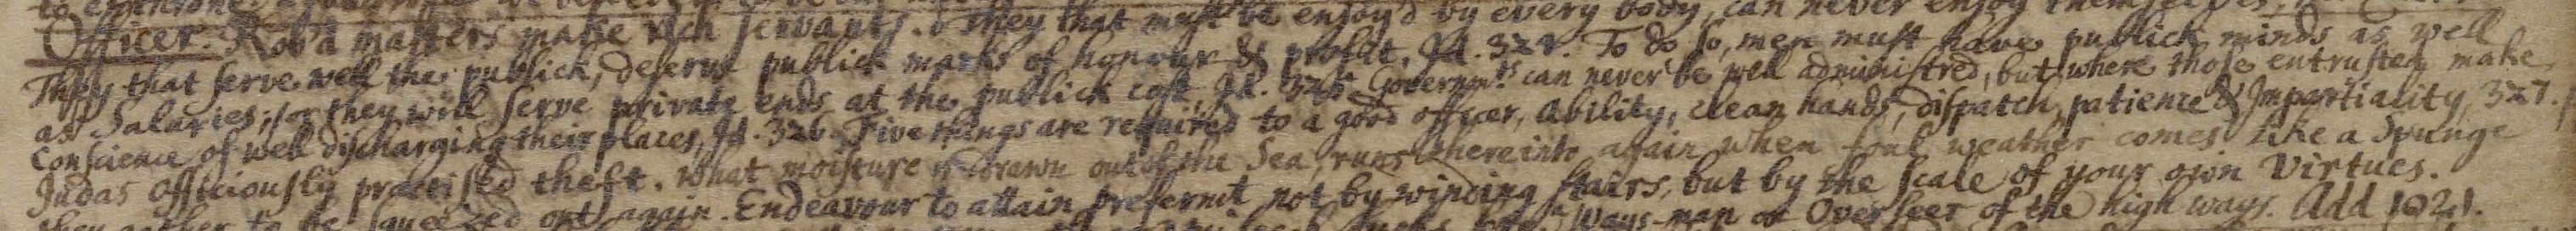 Officer. Rob'd masters make rich servants. They that must be enjoy'd by every body, can never enjoy themselves,
They that serve well the publick, deserve publick marks of honour & profit, Id. 324. To do so, men must have publick minds as well
as Salaries; or they will serve private ends at the publick cost, Id. 325. Governmts can never be well administred, but where those entrusted make
Conscience of well discharging their places, Id. 326. Five things are required to a good officer, Ability, clean hands, dispatch, patience & Impartiality, 327.
Judas officiously practised theft. What moisture is drawn out of the Sea, runs thereinto again when foul weather comes like a Spunge
they gather to be squeezed out again. Endeavour to attain prefermt not by winding stairs, but by the scale of your own Virtues.
Ways-man or Overseer of the high ways. Add 1021.